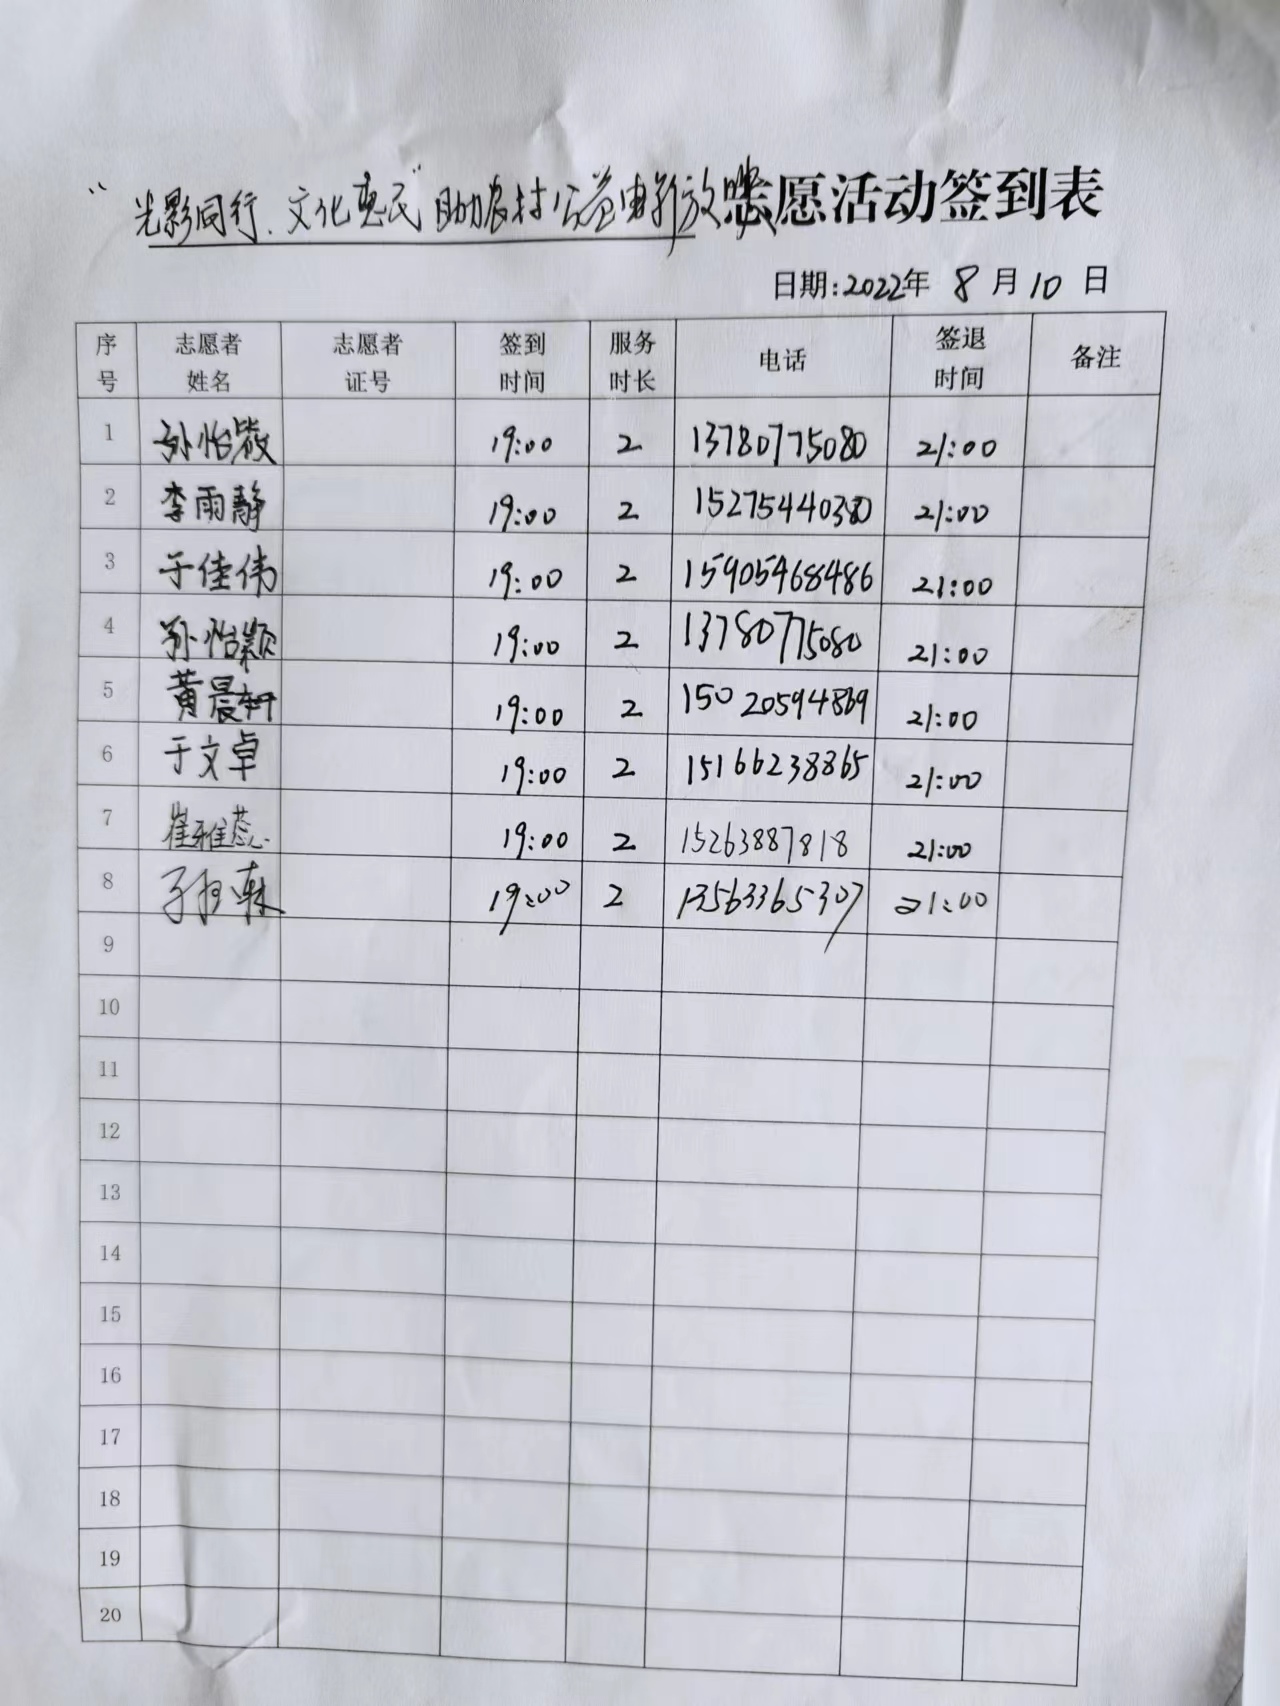 “光影同行、文化惠民”助农村公益电影放映志愿活动签到表
日期:2022年 8 月 10 日
序号 志愿者姓名 志愿者证号 签到时间 服务时长 电话 签退时间 备注
1 孙怡 19:00 2 13780775080 21:00
2 李雨静 19:00 2 15275440380 21:00
3 于佳伟 19:00 2 15905468486 21:00
4 孙怡颖 19:00 2 13780775080 21:00
5 黄晨轩 19:00 2 15020594869 21:00
6 于文卓 19:00 2 15166238865 21:00
7 崔雅蕊 19:00 2 15263887818 21:00
8 19:00 2 13563365307 21:00
9
10
11
12
13
14
15
16
17
18
19
20